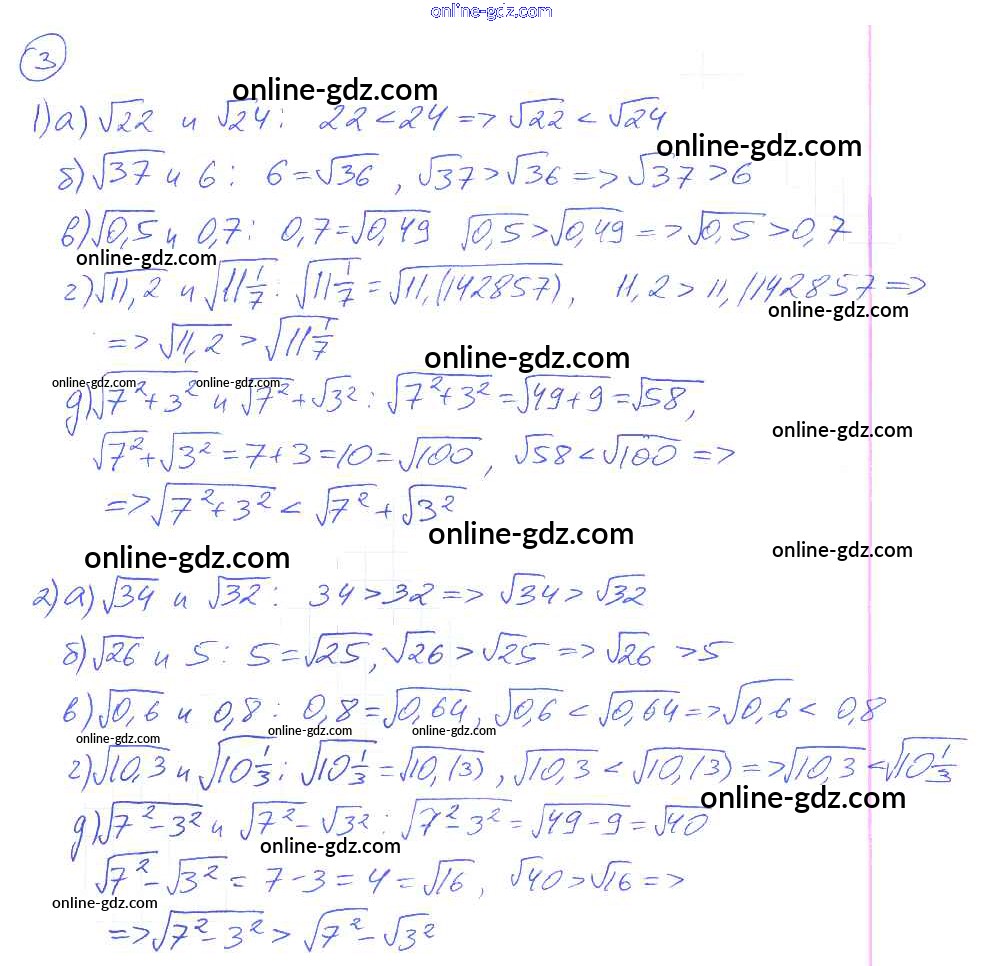 online-gdz.com
3
online-gdz.com
1) а) √22 и √24 : 22 < 24 => √22 < √24
online-gdz.com
б) √37 и 6 : 6 = √36 , √37 > √36 => √37 > 6
в) √0,5 и 0,7 : 0,7 = √0,49 √0,5 > √0,49 => √0,5 > 0,7
online-gdz.com
г) √11,2 и √11 1/7 : √11 1/7 = √11,(142857) , 11,2 > 11,(142857 =>
online-gdz.com
=> √11,2 > √11 1/7
online-gdz.com
online-gdz.com online-gdz.com
д) √7²+3² и √7² + √3² : √7²+3² = √49+9 = √58 ,
online-gdz.com
√7² + √3² = 7 + 3 = 10 = √100 , √58 < √100 =>
=> √7²+3² < √7² + √3²
online-gdz.com
online-gdz.com
online-gdz.com
2) а) √34 и √32 : 34 > 32 => √34 > √32
б) √26 и 5 : 5 = √25 , √26 > √25 => √26 > 5
в) √0,6 и 0,8 : 0,8 = √0,64 , √0,6 < √0,64 => √0,6 < 0,8
online-gdz.com online-gdz.com online-gdz.com
г) √10,3 и √10 1/3 ; √10 1/3 = √10,(3) , √10,3 < √10,(3) => √10,3 < √10 1/3
online-gdz.com
д) √7²-3² и √7² - √3² : √7²-3² = √49-9 = √40
online-gdz.com
√7² - √3² = 7 - 3 = 4 = √16 , √40 > √16 =>
online-gdz.com
=> √7²-3² > √7² - √3²